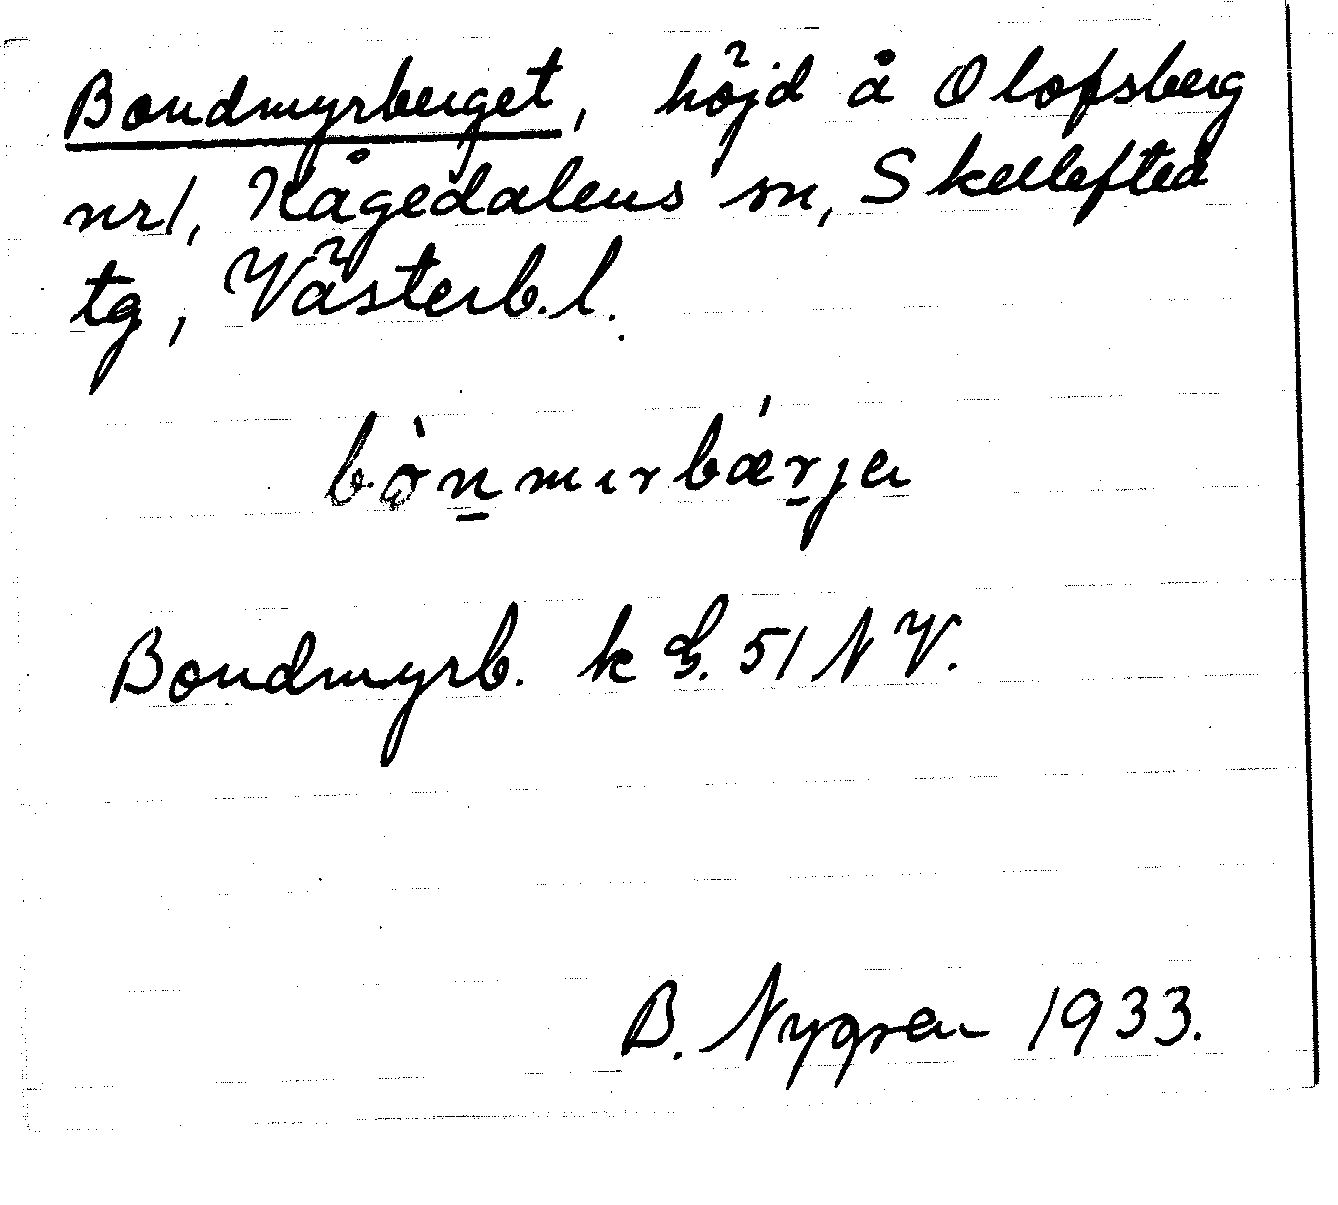 Bondmyrberget, höjd å Olofsberg
nr 1, Kågedalens sn, Skellefteå
tg, Västerb. l.
bò̱nmırbǽrja
Bondmyrb. k G. 51 NV.
B. Nygren 1933.